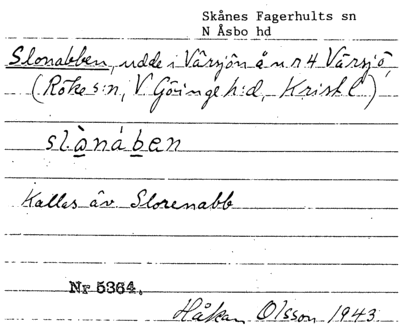 Skånes Fagerhults sn
N Åsbo hd
Slonabben, udde i Vårsjön å nr 4 Vårsjö,
(Röke s:n, V. Göinge h:d, Krist l)
slònáben
Kallas äv Slorenabb
Nr 5364.
Håkan Olsson 1943.